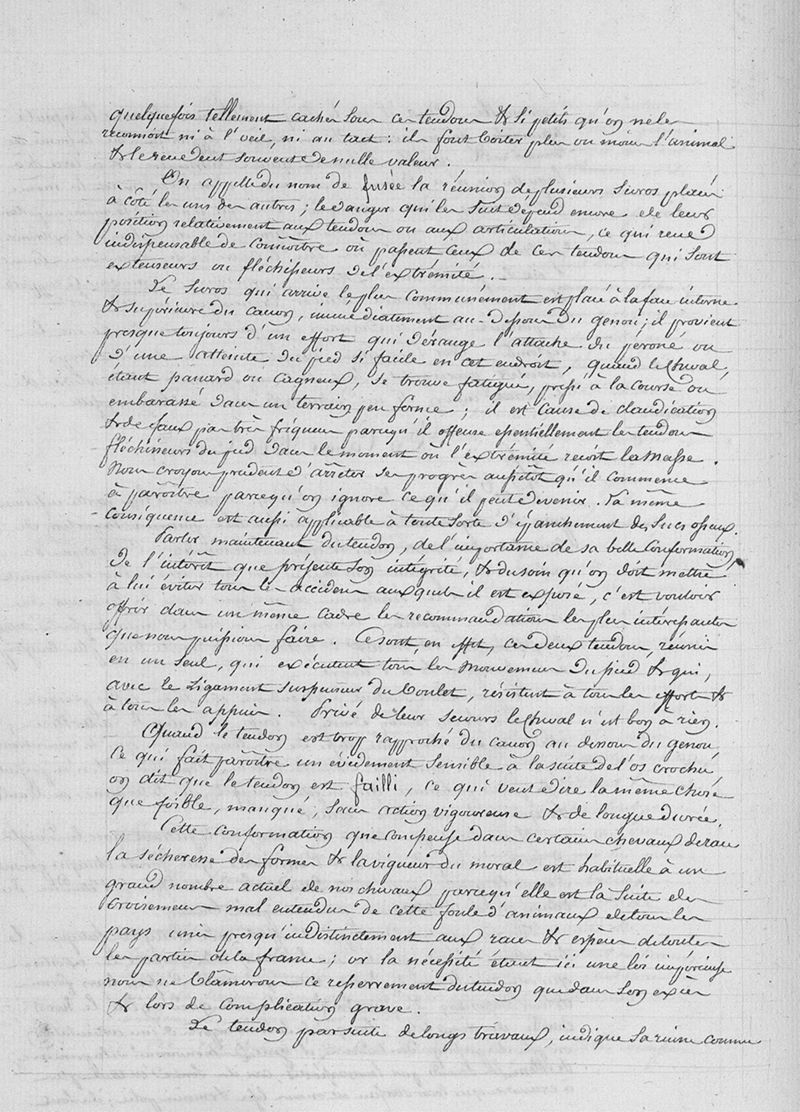 quelquefois tellement cachés sous ces tendons & si petits qu'on ne les
reconnoit ni à l'œil, ni au tact : ils font boiter plus ou moins l'animal
& le rendent souvent de nulle valeur.
On appelle du nom de fusée la réunion de plusieurs suros placés
à côté les uns des autres ; le danger qui les suit dépend encore de leurs
position relativement aux tendons ou aux articulations, ce qui rend
indispensable de connoître où passent ceux de ces tendons qui sont
extenseurs ou fléchisseurs de l'extrémité.
Le suros qui arrive le plus communément est placé à la face interne
& supérieure du canon, immédiatement au-dessous du genou ; il provient
presque toujours d'un effort qui dérange l'attache du peroné ou
d'une atteinte du pied si facile en cet endroit, quand le cheval,
étant panard ou cagneux, se trouve fatigué, pressé à la course ou
embarassé dans un terrain peu ferme ; il est cause de claudication
& de faux pas très fréquens parcequ'il offense essentiellement les tendons
fléchisseurs du pied dans le moment où l'extrémité reçoit la masse.
Nous croyons prudent d'arrêter ses progrès aussitôt qu'il commence
à paroître parcequ'on ignore ce qu'il peut devenir. La même
conséquence est aussi applicable à toute sorte d'épanchement des sucs osseux.
Parler maintenant du tendon, de l'importance de sa belle conformation,
de l'intérêt que présente son intégrité, & du soin qu'on doit mettre
à lui éviter tous les accidens auxquels il est exposé, c'est vouloir
offrir dans un même cadre les recommandations les plus intéressantes
que nous puissions faire. Ce sont, en effet, ces deux tendons, réunis
en un seul, qui exécutent tous les mouvemens du pied & qui,
avec le ligament suspenseur du boulet, résistent à tous les efforts &
à tous les appuis. Privé de leur secours le cheval n'est bon à rien.
Quand le tendon est trop rapproché du canon au dessous du genou,
ce qui fait paroître un évidement sensible à la suite de l'os crochu
on dit que le tendon est failli, ce qui veut dire la même chose
que foible, manqué, sans action vigoureuse & de longue durée.
Cette conformation que compense dans certains chevaux de race
la sécheresse des formes & la vigueur du moral est habituelle à un
grand nombre actuel de nos chevaux parcequ'elle est la suite des
croisemens mal entendus de cette foule d'animaux de tous les
pays unis presqu'indistinctement aux races & espèces de toutes
les parties de la france ; or la nécessité étant ici une loi impérieuse
nous ne blâmerons ce resserrement du tendon que dans son excès
& lors de complication grave.
Le tendon par suite de longs travaux, indique sa ruine comme